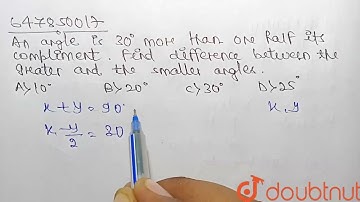 647850017
An angle is 30° more than one half its
compliment. Find difference between the
greater and the smaller angles.
A) 10° B) 20° C) 30° D) 25°
x + y = 90° x, y
x - y/2 = 30
doubtnut